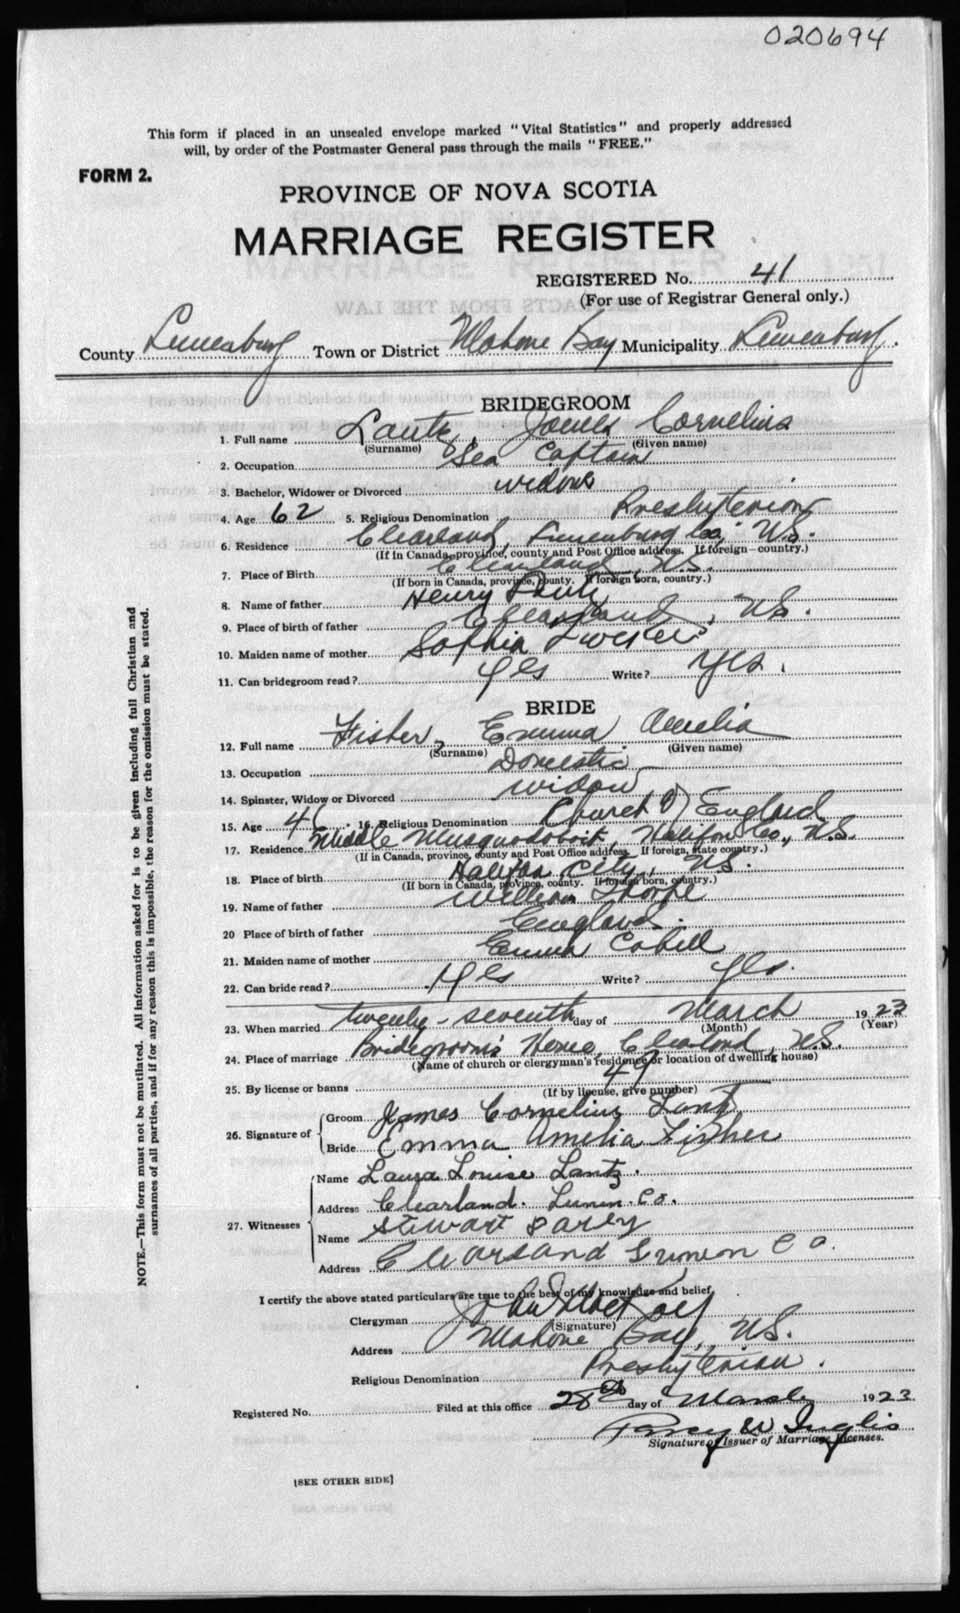 020694
This form if placed in an unsealed envelope marked "Vital Statistics" and properly addressed
will, by order of the Postmaster General pass through the mails "FREE."
FORM 2.
PROVINCE OF NOVA SCOTIA
MARRIAGE REGISTER
REGISTERED No. 41
(For use of Registrar General only.)
County Lunenburg Town or District Mahone Bay Municipality Lunenburg.
BRIDEGROOM
1. Full name Lantz, James Cornelius
(Surname) (Given name)
2. Occupation Sea Captain
3. Bachelor, Widower or Divorced widower
4. Age 62 5. Religious Denomination Presbyterian
6. Residence Clearland, Lunenburg Co., N.S.
(If in Canada, province, county and Post Office address. If foreign—country.)
7. Place of Birth Clearland, N.S.
(If born in Canada, province, county. If foreign born, country.)
8. Name of father Henry Lantz
9. Place of birth of father Clearland, N.S.
10. Maiden name of mother Sophia
11. Can bridegroom read? yes Write? yes.
BRIDE
12. Full name Fisher, Emma Amelia
(Surname) (Given name)
13. Occupation Domestic
14. Spinster, Widow or Divorced widow
15. Age 16. Religious Denomination Church of England
17. Residence. Middle Musquodoboit, Halifax Co., N.S.
(If in Canada, province, county and Post Office address. If foreign, state country.)
18. Place of birth Halifax City, N.S.
(If born in Canada, province, county. If foreign born, country.)
19. Name of father William Thorpe
20 Place of birth of father England.
21. Maiden name of mother Emma Cahill
22. Can bride read? yes Write? yes.
23. When married twenty-seventh day of March 1923
(Month) (Year)
24. Place of marriage Bridegroom's Home, Clearland, N.S.
(Name of church or clergyman's residence or location of dwelling house)
25. By license or banns 49
(If by license, give number)
26. Signature of Groom James Cornelius Lantz
Bride Emma Amelia Fisher
27. Witnesses Name Laura Louise Lantz.
Address Clearland. Lunen. Co.
Name Stewart
Address Clearland Lunen Co.
I certify the above stated particulars are true to the best of my knowledge and belief,
Clergyman John
(Signature)
Address Mahone Bay, N.S.
Religious Denomination Presbyterian.
Registered No. Filed at this office 28th day of March 1923
Percy W Inglis
Signature of Issuer of Marriage Licenses.
[SEE OTHER SIDE]
NOTE.—This form must not be mutilated. All information asked for is to be given including full Christian and
surnames of all parties, and if for any reason this is impossible, the reason for the omission must be stated.